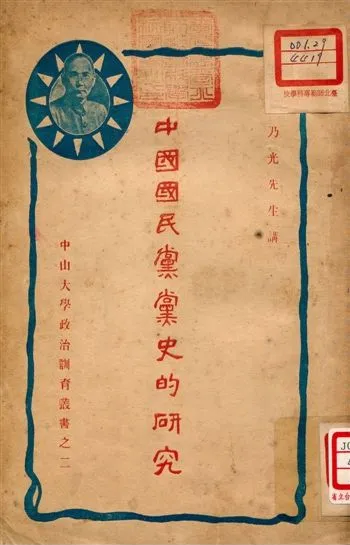 乃光先生講
中國國民黨黨史的研究
中山大學政治訓育叢書之二
001.29
4419
臺北師範專科學校